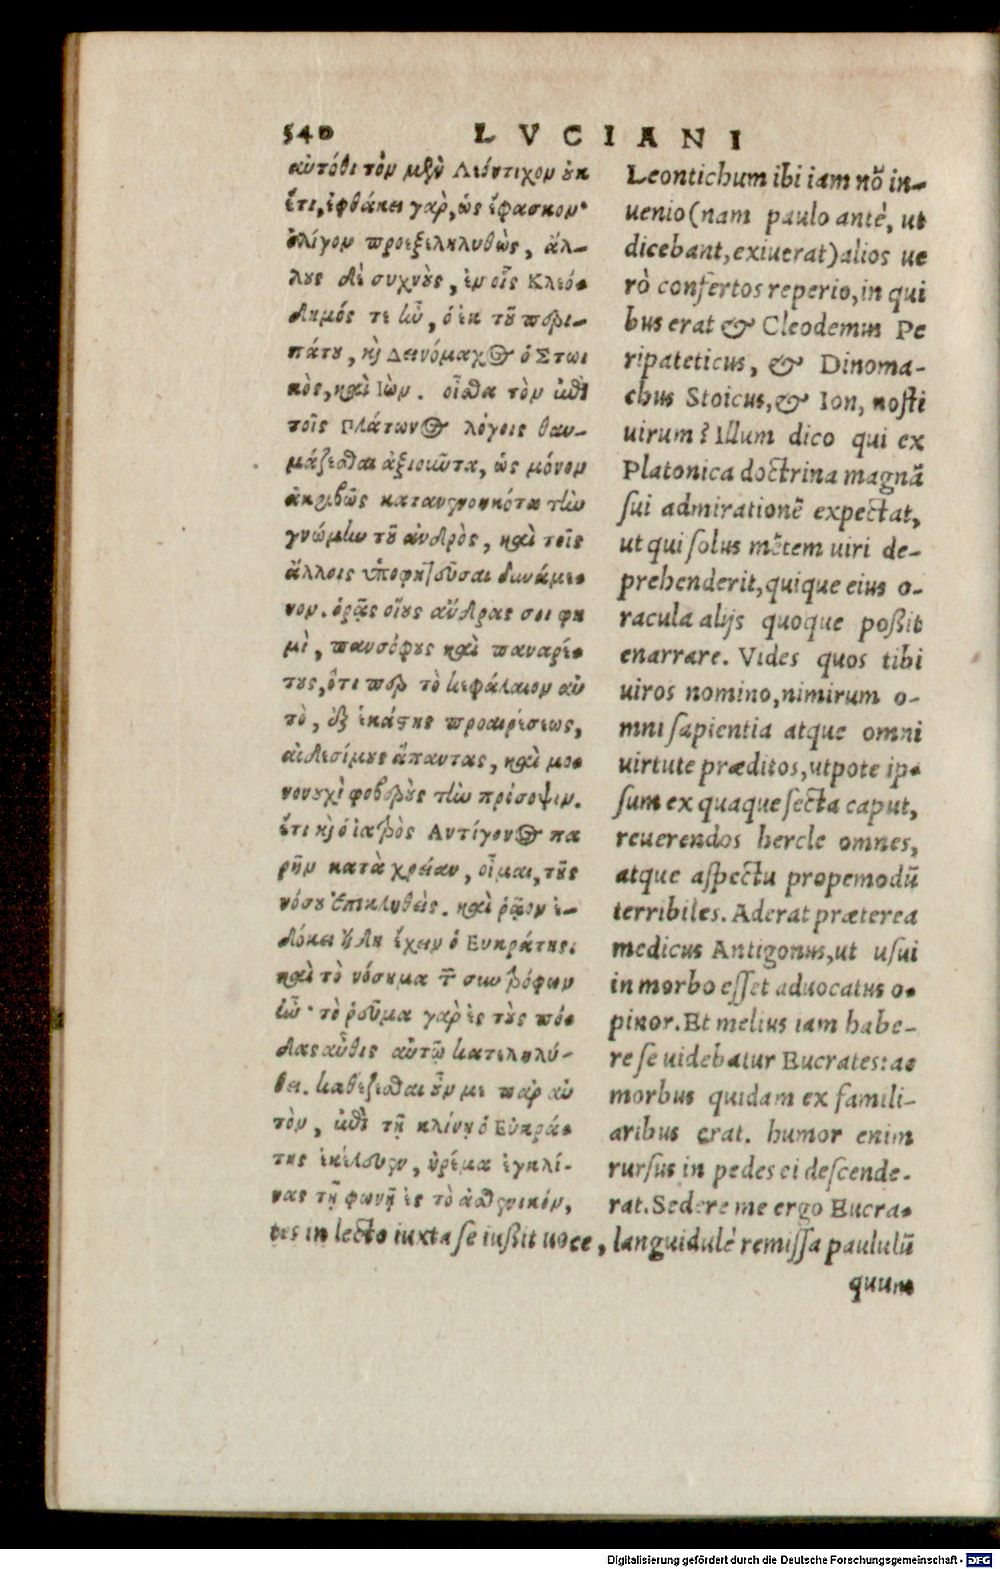 540 LVCIANI
αὐτόθι τὸν μὲν Λεόντιχον ὐκ
ἔτι, ἐφθάκει γὰρ, ὡς ἔφασκον·
ὀλίγον προεξεληλυθὼς, ἄλ-
λους δὲ συχνοὺς, ἐν οἷς Κλεό-
δημός τε ἦν, ὁ ἐκ τοῦ περι-
πάτου, καὶ Δεινόμαχος ὁ Στωι
κὸς, καὶ Ἴων. οἶσθα τὸν ἐπὶ
τοῖς Πλάτωνος λόγοις θαυ-
μάζεσθαι ἀξιοῦντα, ὡς μόνον
ἀκριβῶς κατανενοηκότα τὴν
γνώμην τοῦ ἀνδρὸς, καὶ τοῖς
ἄλλοις ὑποφητεῦσαι δυνάμε-
νον. ὁρᾷς οἵους ἄνδρας σοι φη
μὶ, πανσόφους καὶ παναρέ-
τους, ὅτι περ τὸ κεφάλαιον αὐ
τὸ, ἐξ ἑκάστης προαιρέσεως,
αἰδεσίμους ἅπαντας, καὶ μο-
νονουχὶ φοβεροὺς τὴν πρόσοψιν.
ἔτι καὶ ὁ ἰατρὸς Αντίγονος πα
ρῆν κατὰ χρείαν, οἶμαι, τῆς
νόσου ἐπικληθεὶς. καὶ ῥᾷον ἐ-
δόκει ἤδη ἔχειν ὁ Ευκράτης.
καὶ τὸ νόσημα τῶν συντρόφων
ἦν· τὸ ῥεῦμα γὰρ ἐς τοὺς πό-
δας αὖθις αὐτῷ κατεληλύ-
θει. καθέζεσθαι οὖν με παρ αὐ
τὸν, ἐπὶ τῆς κλίνης ὁ Εὐκρά-
της ἐκέλευεν, ἠρέμα ἐγκλί-
νας τῇ φωνῇ ἐς τὸ ἀσθενικόν,
Leontichum ibi iam nõ in-
uenio (nam paulo antè, ut
dicebant, exiuerat) alios ue
rò confertos reperio, in qui
bus erat & Cleodemus Pe
ripateticus, & Dinoma-
chus Stoicus, & Ion, nosti
uirum? Illum dico qui ex
Platonica doctrina magnã
sui admirationẽ expectat,
ut qui solus mẽtem uiri de-
prehenderit, quique eius o-
racula alijs quoque poßit
enarrare. Vides quos tibi
uiros nomino, nimirum o-
mni sapientia atque omni
uirtute præditos, utpote ip-
sum ex quaque secta caput,
reuerendos hercle omnes,
atque aspectu propemodũ
terribiles. Aderat præterea
medicus Antigonus, ut usui
in morbo esset aduocatus o-
pinor. Et melius iam habe-
re se uidebatur Eucrates: ac
morbus quidam ex famili-
aribus erat. humor enim
rursus in pedes ei descende-
rat. Sedere me ergo Eucra-
tes in lecto iuxta se iußit uoce, languidulè remissa paululũ
quum
Digitalisierung gefördert durch die Deutsche Forschungsgemeinschaft - DFG